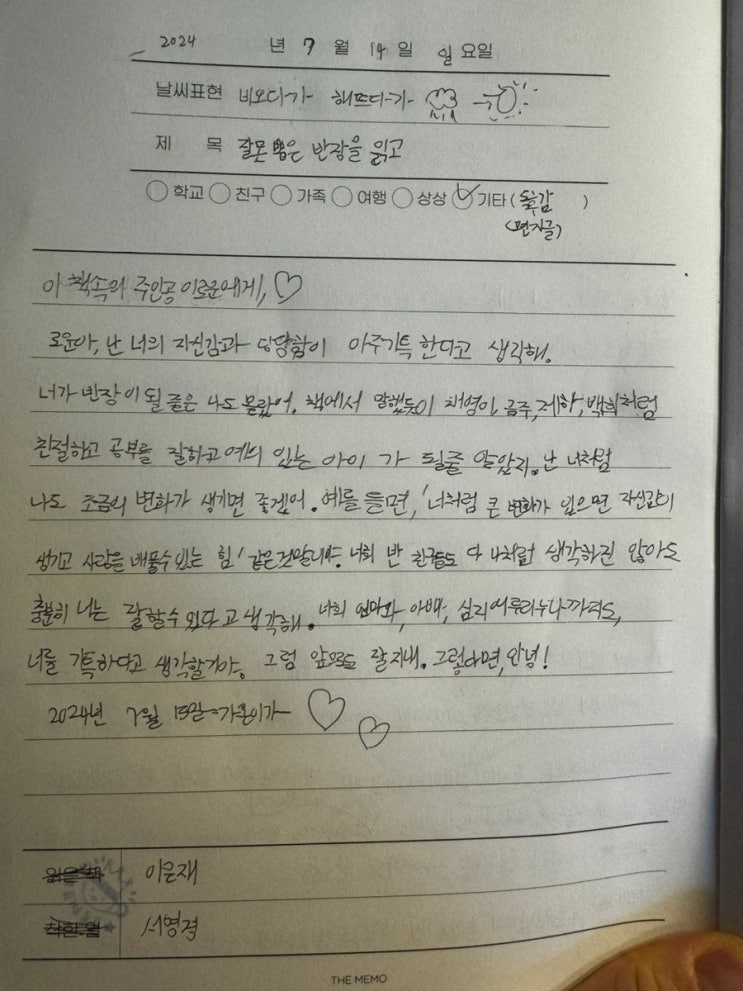 2024 년 7 월 14 일 일 요일
날씨표현 비오다가 해뜨다가
제 목 잘못 뽑은 반장을 읽고
학교 친구 가족 여행 상상 기타 (독감)
(편지글)
이 책속의 주인공 이로운에게,
로운아, 난 너의 자신감과 당당함이 아주기특 한다고 생각해.
너가 반장이 될 줄은 나도 몰랐어. 책에서 말했듯이 채영이, 금주, 제하, 백희처럼
친절하고 공부를 잘하고 예의 있는 아이 가 될줄 알았지. 난 너처럼
나도 조금의 변화가 생기면 좋겠어. 예를 들면, '너처럼 큰 변화가 있으면 자신감이
생기고 사랑을 베풀수있는 힘' 같은것말이야. 너희 반 친구들도 다 나처럼 생각하진 않아도
충분히 너는 잘할수 있다고 생각해. 너희 엄마와, 아빠, 심지어루리누나까지도,
너를 기특하다고 생각할거야. 그럼 앞으로도 잘지내. 그렇다면, 안녕!
2024년 7월 15일 -가
이은재
서영경
THE MEMO